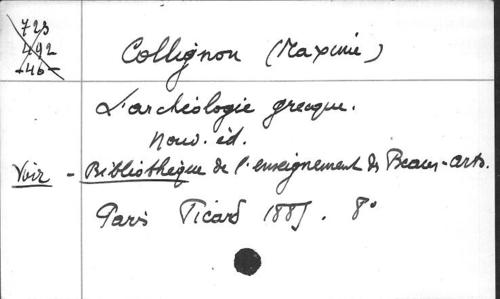 723
492
-46-
Collignon (Maxime)
L'archéologie grecque.
nouv. éd.
Voir - Bibliothèque de l'enseignement des Beaux-arts.
Paris Picard 1887. 8°